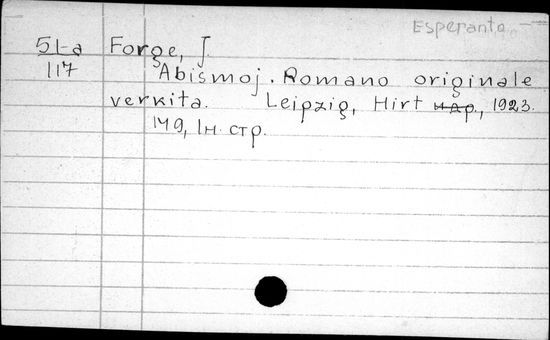 Esperanto
51-a Forge, J.
117 Abismoj. Romano originale
verkita. Leipzig, Hirt 1923.
149, 1н. стр.